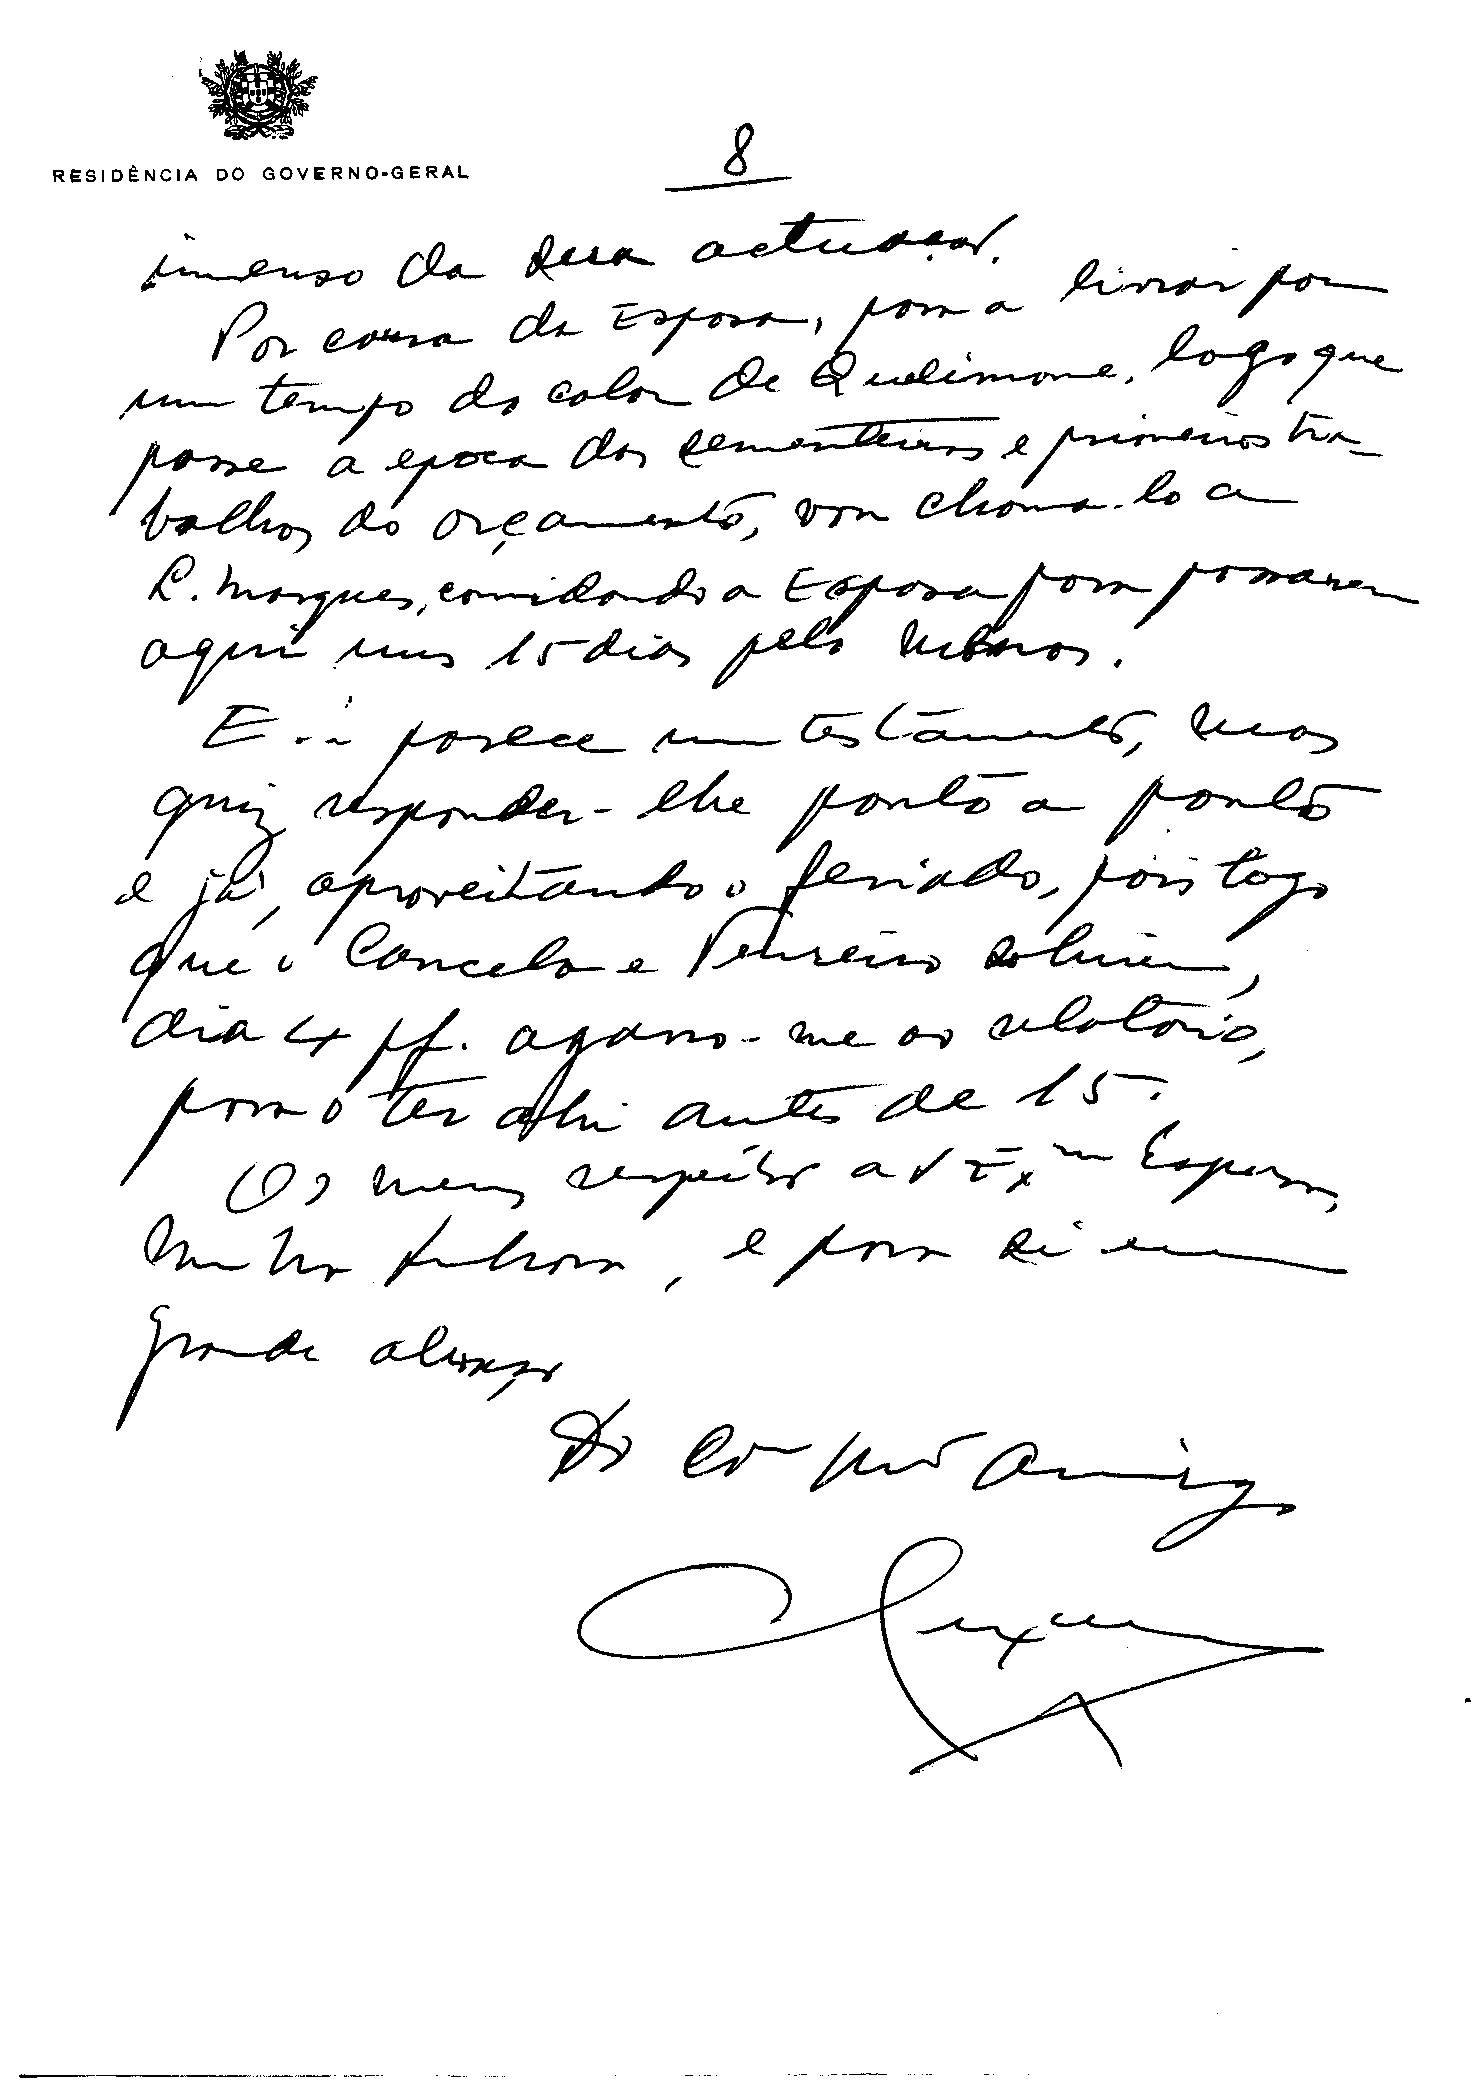 RESIDÊNCIA DO GOVERNO-GERAL
8
imenso da sua actuação.
Por causa da Esposa, para a livrar por
um tempo do calor de Quelimane, logo que
passe a epoca das sementeiras e primeiros tra-
balhos do orçamento, vou chama-lo a
L. Marques, convidando a Esposa para passarem
aqui uns 15 dias pelo menos.
E já parece um testamento, mas
quiz responder-lhe ponto a ponto
e já, aproveitando o feriado, pois logo
que o Cancela e Ferreiro
dia 4 pf. agarro-me ao relatório,
para o ter ahi antes de 15.
Os meus respeitos a V Exma Esposa,
minha Senhora, e para si um
grande abraço
Do amigo